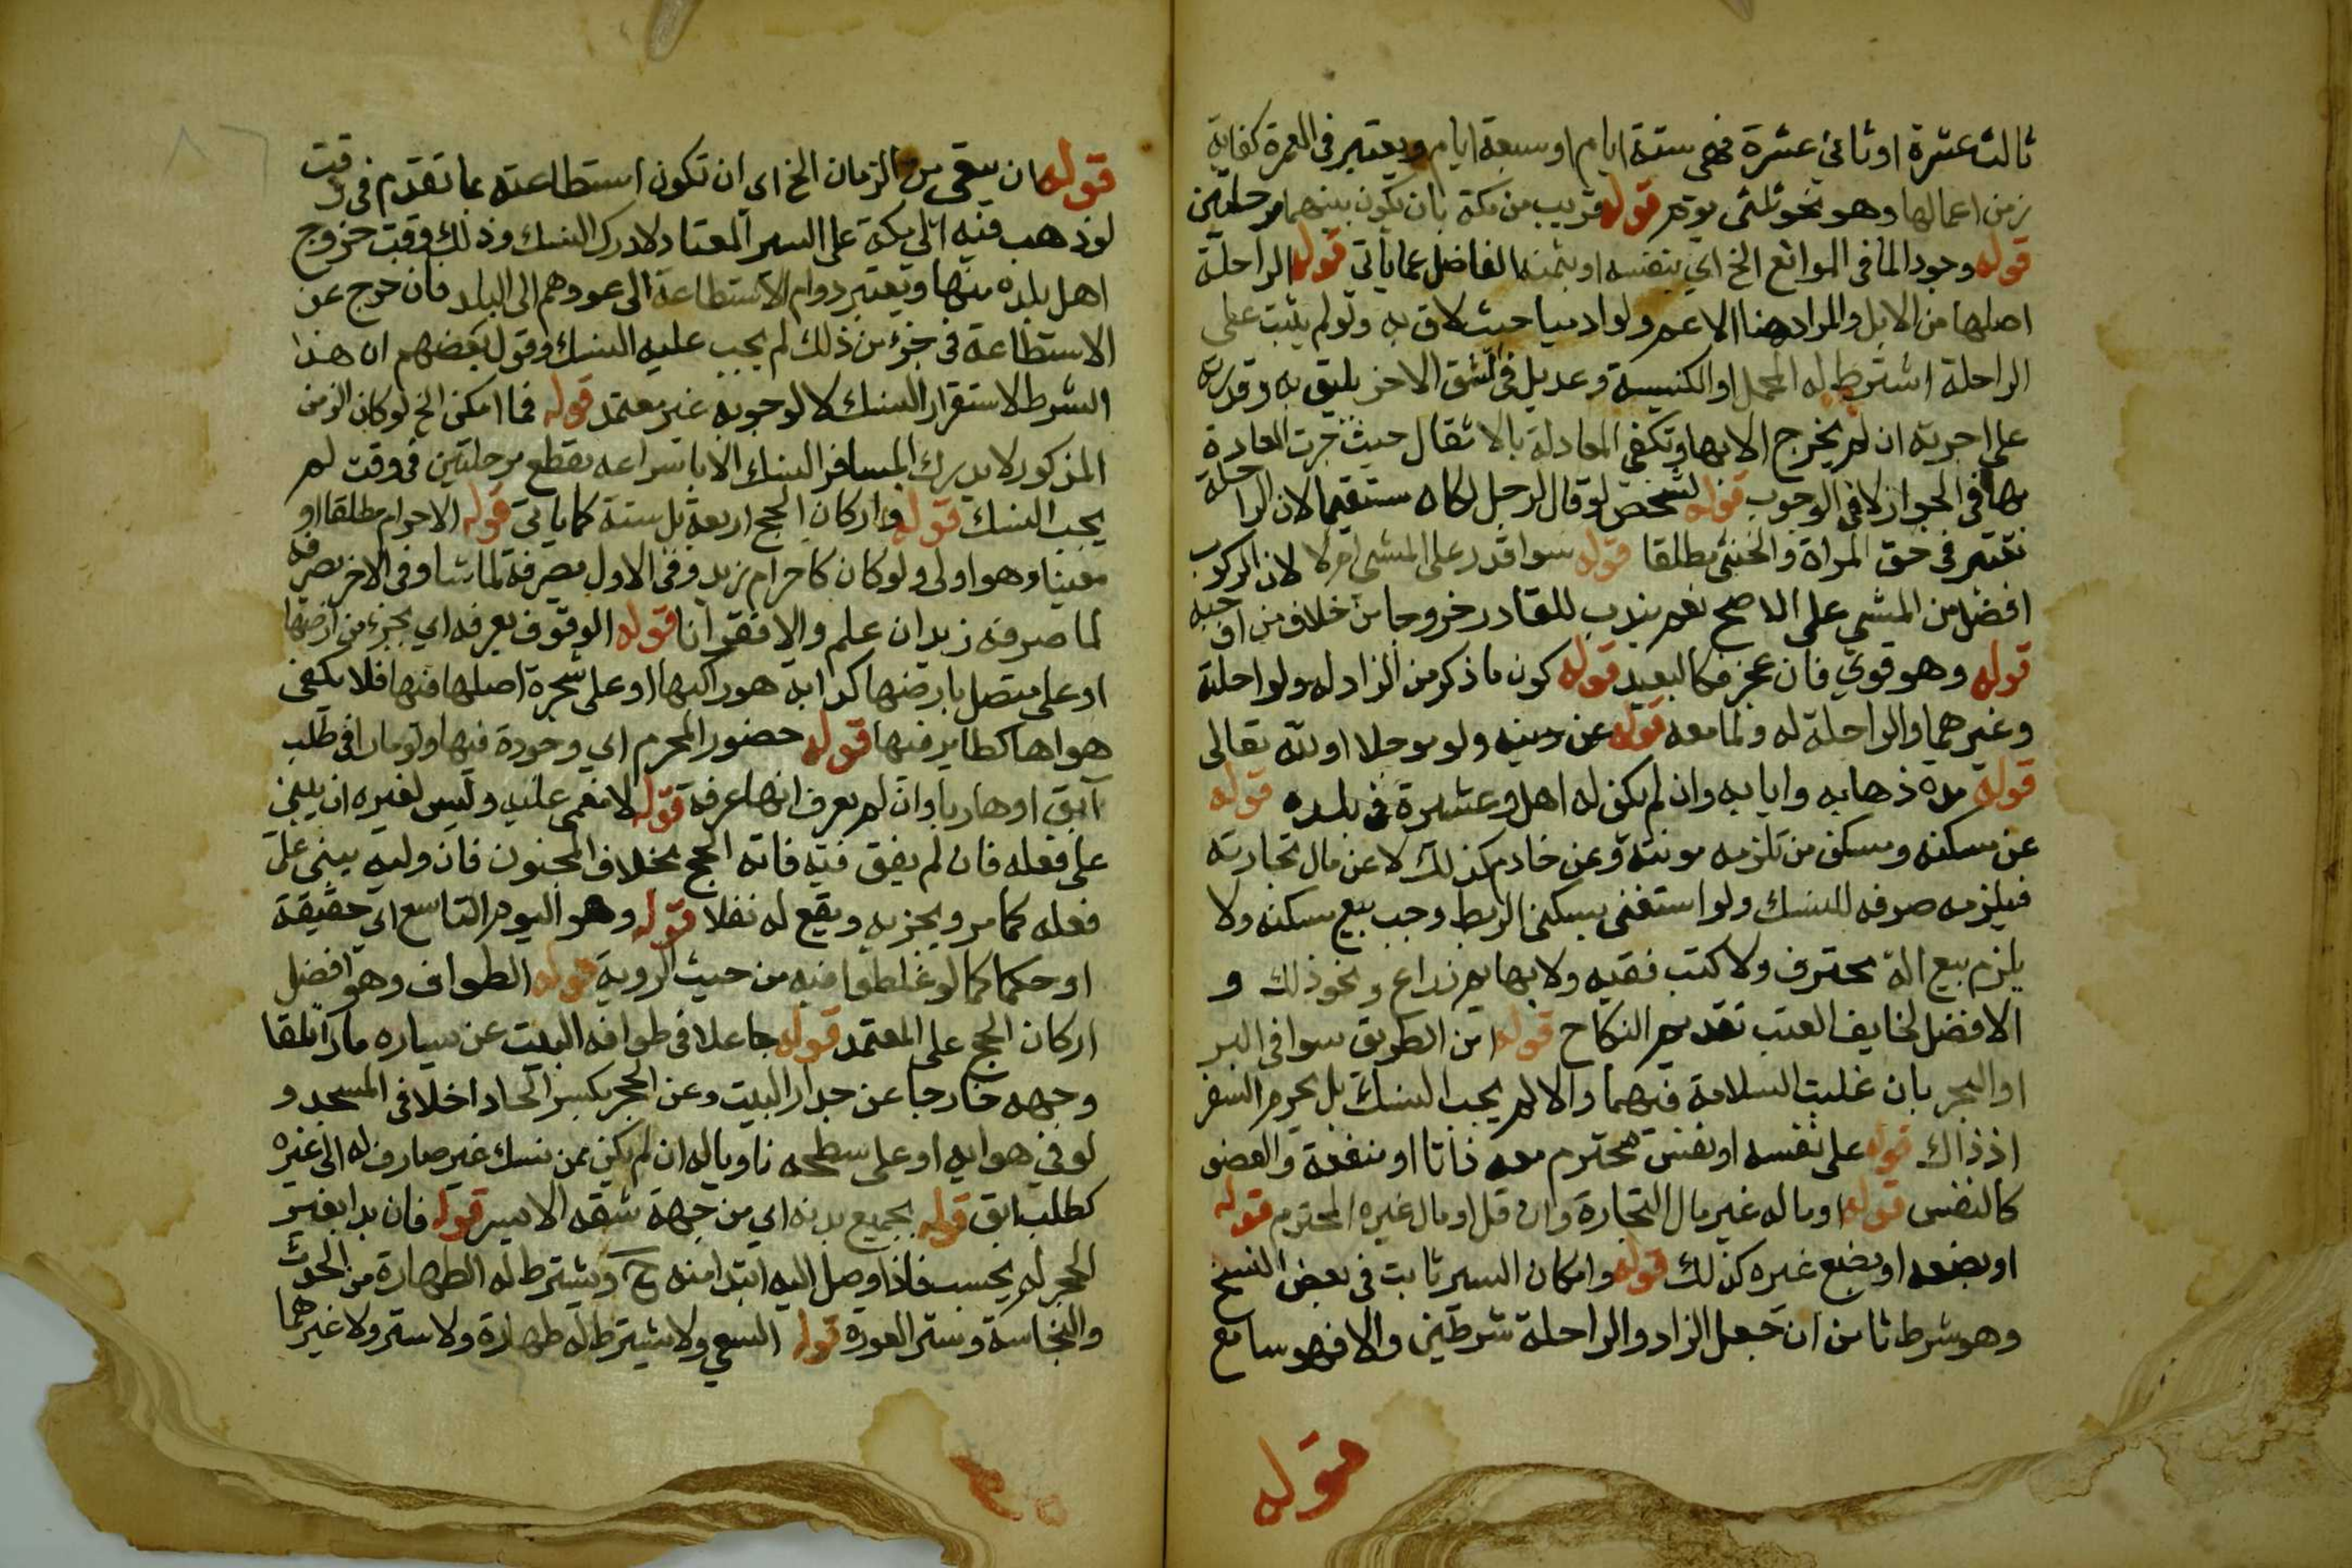 ثالث عشرة او ثاني عشرة فهى ستة ايام او سبعة ايام ويعتبر فى العمرة كفاية
زمن اعمالها وهو نحو ثلثى يوم قوله قريب من مكة بان يكون بينهما مرحلتين
قوله وجود الما فى المواضع الخ اي بنفسه او بثمنه الفاضل عما ياتي قوله الراحلة
اصلها من الابل والمراد هنا الاعم ولو ادميا حيث لاق به ولو لم يثبت على
الراحلة اشترط له المحمل او الكنيسة وعديل فى الشق الاخر يليق به وقدرته
على اجرته ان لم يخرج الا بها وتكفى المعادلة بالاثقال حيث جرت العادة
بها فى الجواز لا فى الوجوب قوله لشخص لو قال لرجل لكان مستقيما لان الراحلة
تعتبر فى حق المراة والخنثى مطلقا قوله سوا قدر على المشى ام لا لان الركوب
افضل من المشي على الاصح نعم يندب للقادر خروجا من خلاف من اوجبه
قوله وهو قوي فان عجز فكالبعيد قوله كون ما ذكر من الزاد له ولو احلة
وغيرهما والراحلة له ولما معه قوله عن دينه ولو موجلا او لله تعالى
قوله مدة ذهابه وايابه وان لم يكن له اهل وعشيرة فى بلده قوله
عن مسكنه ومسكن من تلزمه مونته وعن خادم كذلك لا عن مال تجارته
فيلزمه صرفه للنسك ولو استغنى بسكنى الربط وجب بيع مسكنه ولا
يلزم بيع الة محترف ولا كتب فقيه ولا بهايم زراع ونحو ذلك و
الافضل لخايف العنت تقديم النكاح قوله امن الطريق سوا فى البر
او البحر بان غلبت السلامة فيهما والا لم يجب النسك بل يحرم السفر
اذ ذاك قوله على نفسه او نفس محترم معه ذاتا او منفعة والعضو
كالنفس قوله او ماله غير مال التجارة وان قل او مال غيره المحترم قوله
او بضعه او بضع غيره كذلك قوله وامكان السير ثابت فى بعض النسخ
وهو شرط ثامن ان جعل الزاد والراحلة شرطين والا فهو سابع
قوله
قوله ان يبقى من الزمان الخ اي ان تكون استطاعته بما تقدم فى وقت
لو ذهب فيه الى مكة على السير المعتاد لادرك النسك وذلك وقت خروج
اهل بلده منها ويعتبر دوام الاستطاعة الى عودهم الى البلد فان خرج عن
الاستطاعة فى جزء من ذلك لم يجب عليه النسك وقول بعضهم ان هذا
الشرط لاستقرار النسك لا لوجوبه غير معتمد قوله فما امكن الخ لو كان الزمن
المذكور لا يدرك المسافر النسك الا باسراعه بقطع مرحلتين فى وقت لم
يجب النسك قوله واركان الحج اربعة بل ستة كما ياتى قوله الاحرام مطلقا او
معينا وهو اولى ولو كان كاحرام زيد وفى الاول يصرفه لما شا وفى الاخر يصرفه
لما صرفه زيد ان علم والا فقرانا قوله الوقوف بعرفه اي بجزء من ارضها
او على متصل بارضها كدابة هو راكبها او على شجرة اصلها فيها فلا يكفى
هواها كطاير فيها قوله حضور المحرم اي وجوده فيها ولو مارا فى طلب
آبق او هاربا وان لم يعرف انها عرفة قوله لا مغمى عليه وليس لغيره ان يبنى
على فعله فان لم يفق فيه فاته الحج بخلاف المجنون فان وليه يبني على
فعله كما مر ويجزيه ويقع له نفلا قوله وهو اليوم التاسع اي حقيقة
او حكما كما لو غلطوا فيه من حيث الروية قوله الطواف وهو افضل
اركان الحج على المعتمد قوله جاعلا فى طوافه البيت عن يساره مارا تلقا
وجهه خارجا عن جدار البيت وعن الحجر بكسر الحا داخلا فى المسجد و
لو في هوايه او على سطحه ناويا له ان لم يكن ضمن نسك غير صارف له الى غيره
كطلب ابق قوله بجميع بدنه اي من جهة شقه الايسر قوله فان بدا بغير
الحجر لم يحسب فاذا وصل اليه ابتدا منه ح ويشترط له الطهارة من الحدث
والنجاسة وستر العورة قوله السعي ولا يشترط له طهارة ولا ستر ولا غيرهما